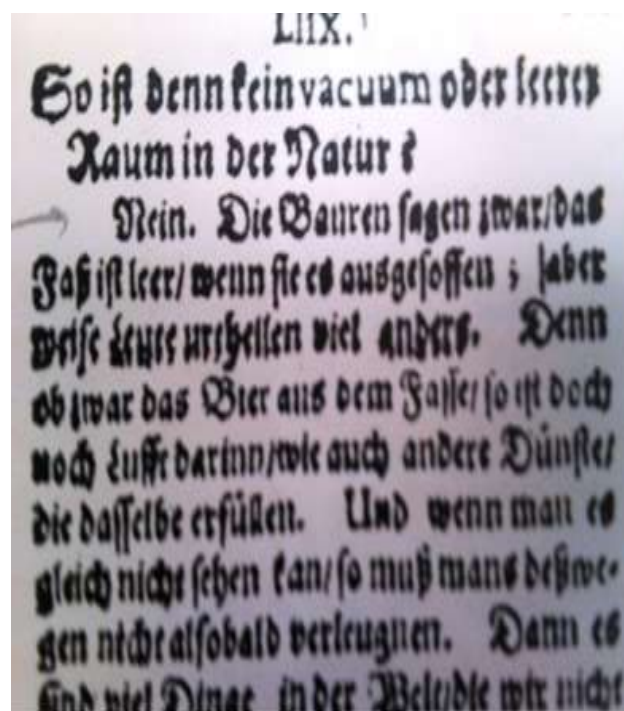 LIIX.
So ist denn kein vacuum oder leerer
Raum in der Natur?
Nein. Die Bauren sagen zwar/das
Faß ist leer/wenn sie es ausgesoffen; aber
weise Leute urtheilen viel anders. Denn
ob zwar das Bier aus dem Fasse/so ist doch
noch Lufft darinn/wie auch andere Dünste/
die dasselbe erfüllen. Und wenn man es
gleich nicht sehen kan/so muß mans deßwe-
gen nicht alsobald verleugnen. Dann es
sind viel Dinge in der Welt/die wir nicht